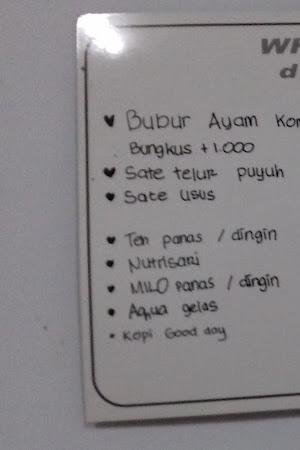 WH
d
Bubur Ayam Kom
Bungkus +1.000
Sate telur puyuh
Sate usus
Teh panas / dingin
Nutrisari
MILO panas / dingin
Aqua gelas
Kopi Good day